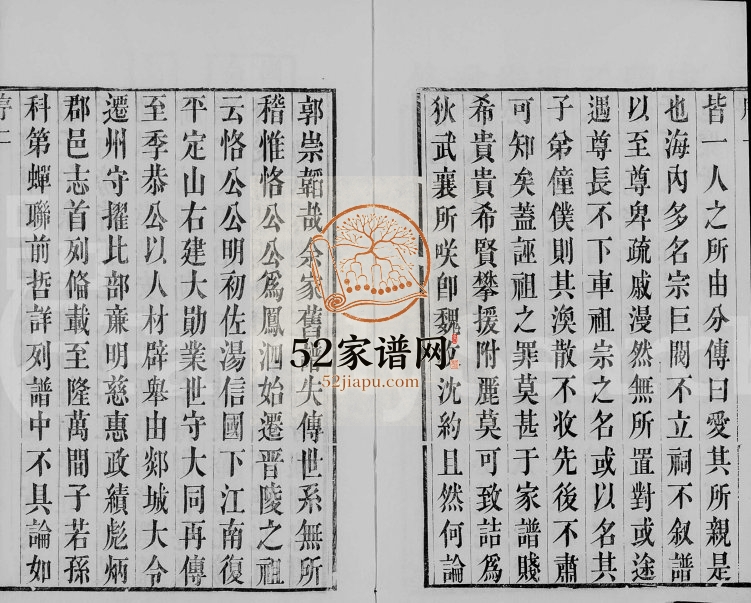 皆一人之所由分傳曰愛其所親是
也海內多名宗巨閥不立祠不敘譜
以至尊卑疏戚漫然無所置對或途
遇尊長不下車祖宗之名或以名其
子弟僮僕則其渙散不收先後不肅
可知矣蓋誣祖之罪莫甚于家譜賤
希貴貴希賢攀援附麗莫可致詰爲
狄武襄所咲卽魏沈約且然何論
郭崇韜哉余家舊失傳世系無所
稽惟恪公公爲鳳泗始遷晉陵之祖
云恪公公明初佐湯信國下江南復
平定山右建大勛業世守大同再傳
至季恭公以人材辟舉由郯城大令
遷州守擢比部廉明慈惠政績彪炳
郡邑志首列偹載至隆萬間子若孫
科第蟬聯前哲詳列譜中不具論如
序二
52家谱网
52jiapu.com